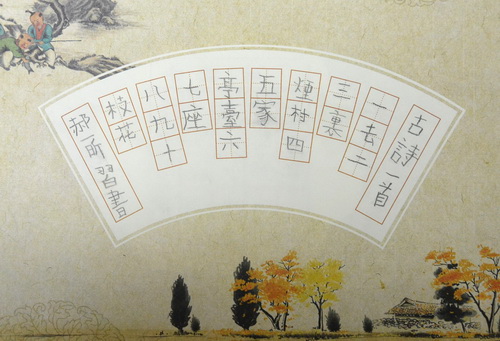 古詩一首
一去二
三裏
煙村四
五家
亭臺六
七座
八九十
枝花
郝一所習書